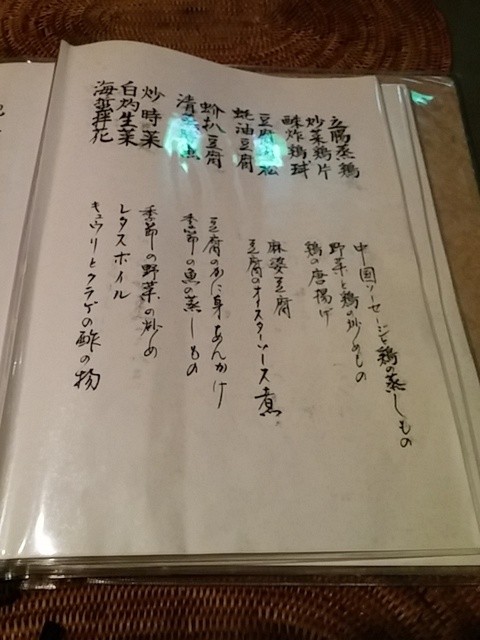 蒸鶏
中国ソーセージと鶏の蒸しもの
炒菜鶏片
野菜と鶏の炒めもの
酥炸鶏球
鶏の唐揚げ
豆腐
麻婆豆腐
蚝油豆腐
豆腐のオイスターソース煮
扒豆腐
豆腐のかに身あんかけ
清
季節の魚の蒸しもの
炒時菜
季節の野菜の炒め
白灼生菜
レタスボイル
海蜇拌花
キュウリとクラゲの酢の物